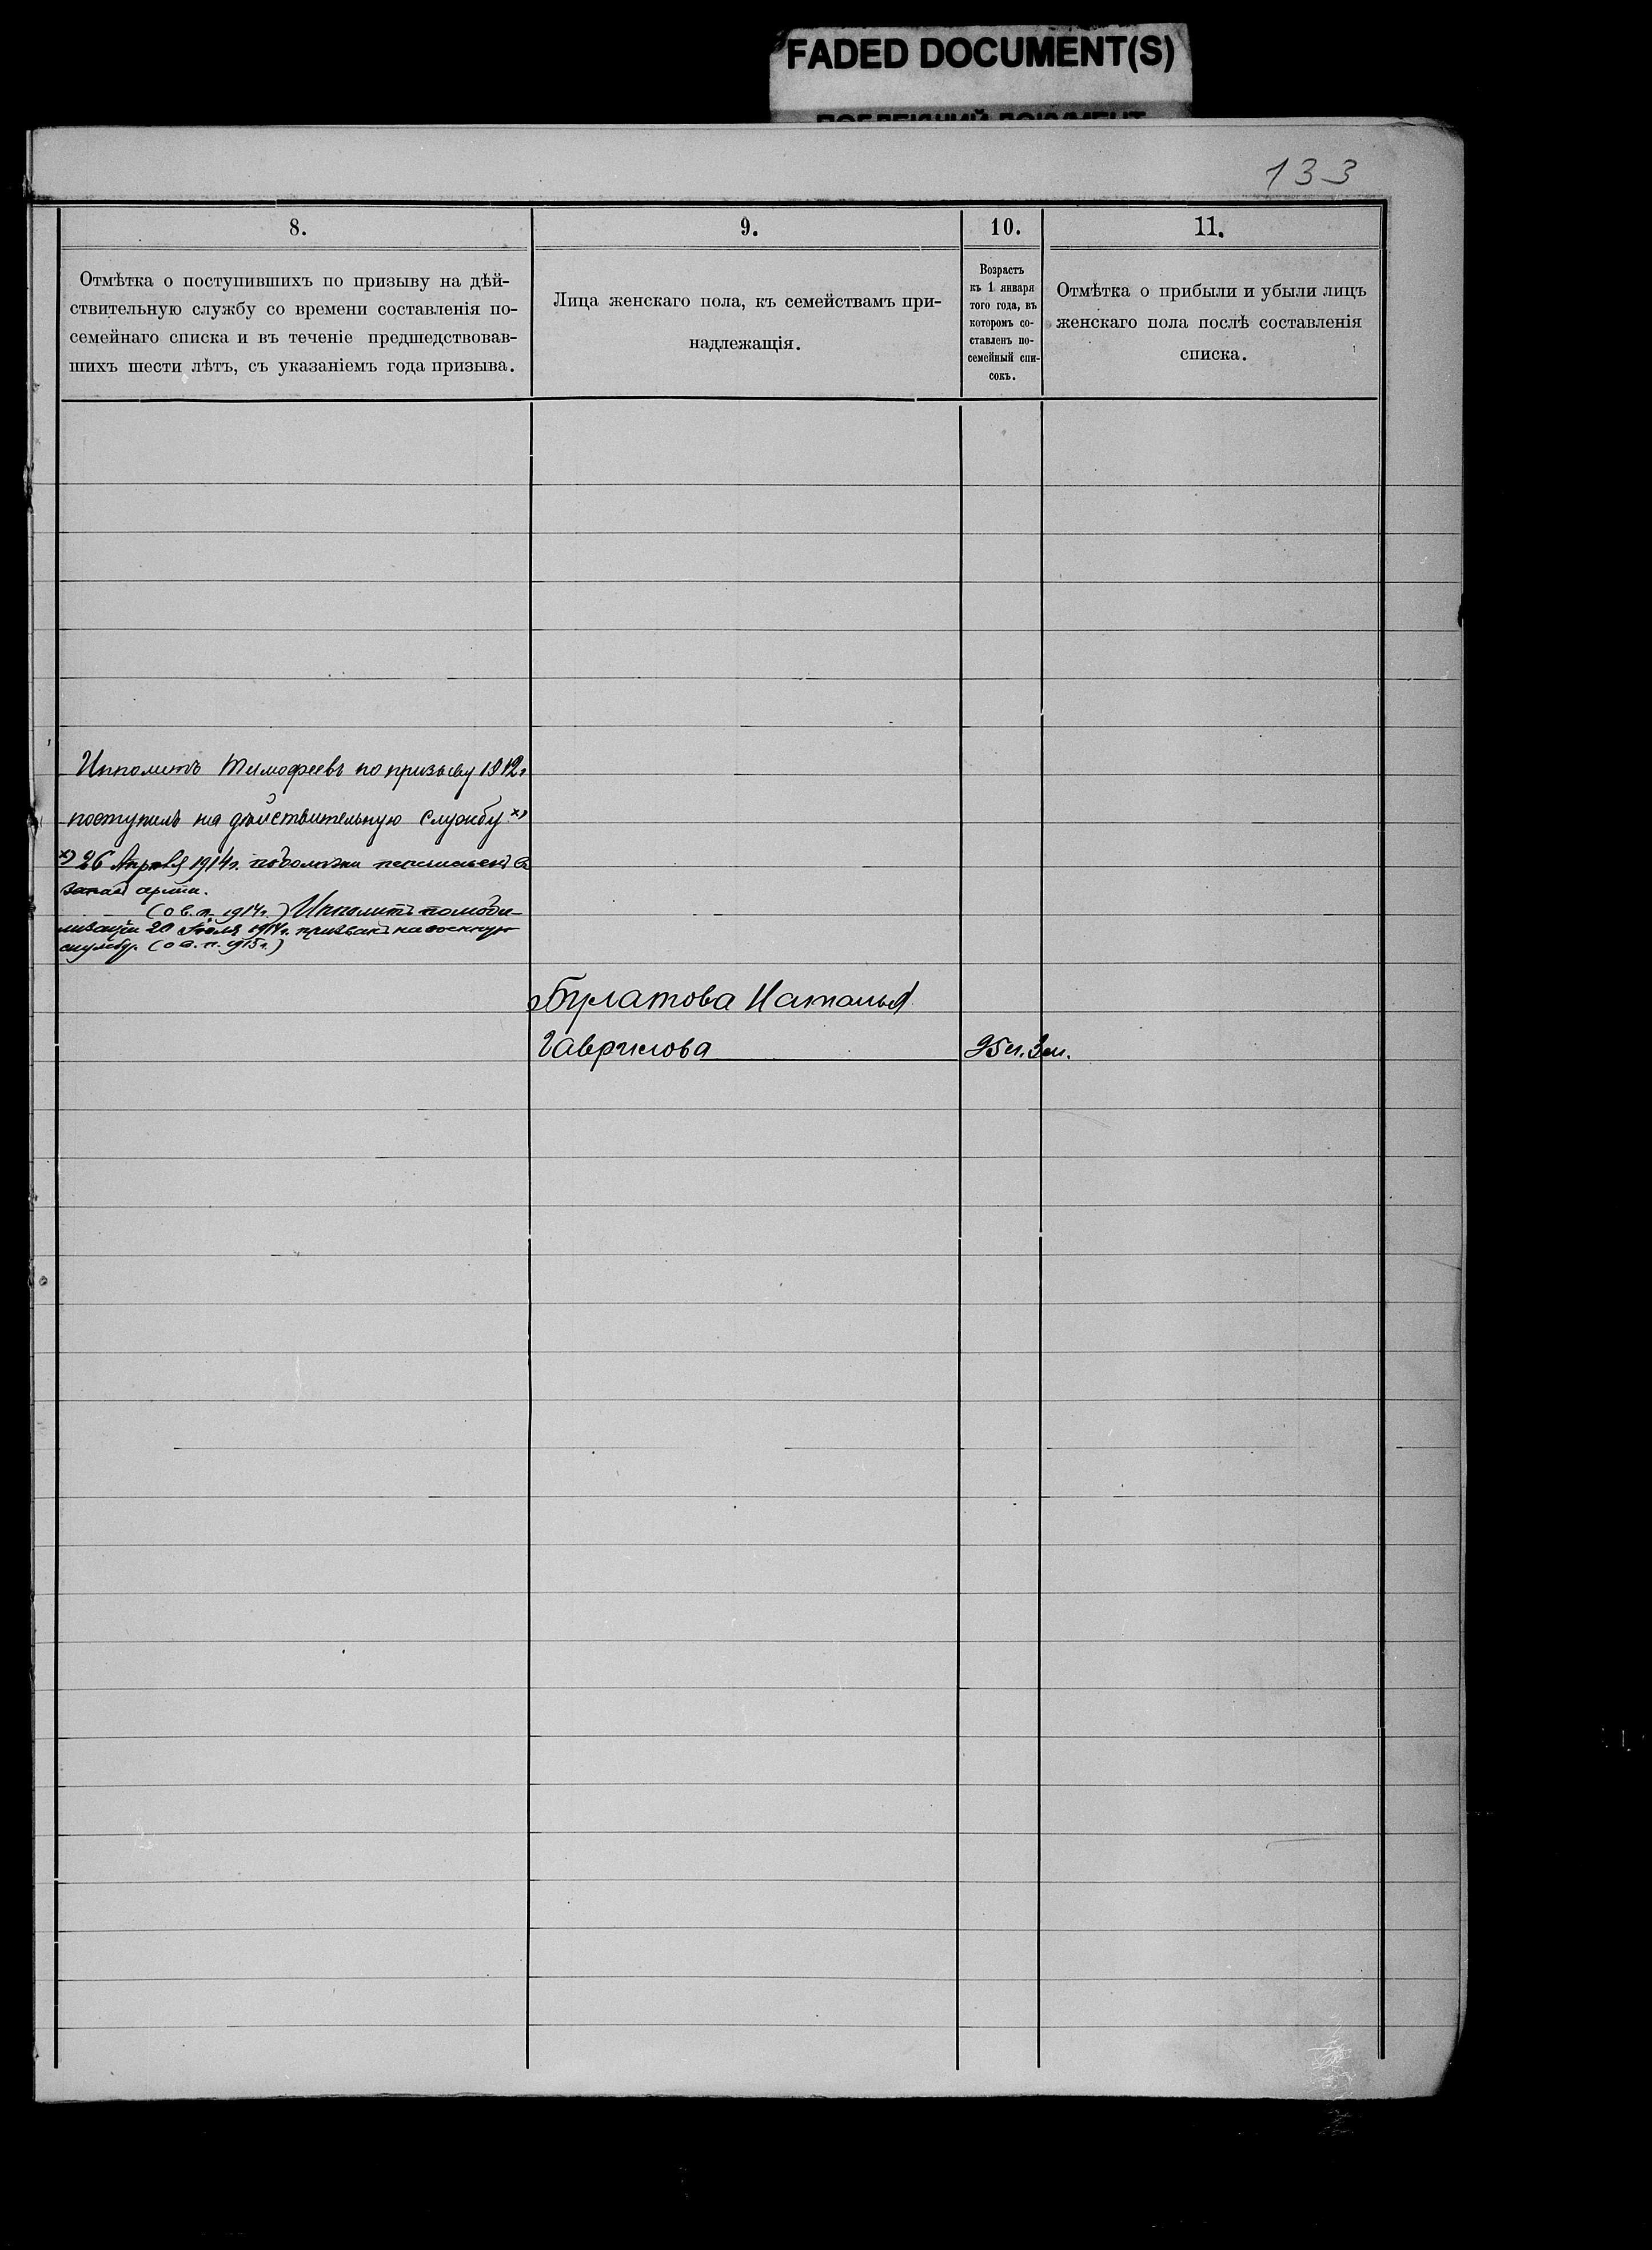 FADED DOCUMENT(S)
133
8.
9.
10.
11.
Отмѣтка о поступившихъ по призыву на дѣй-
ствительную службу со времени составленія по-
семейнаго списка и въ теченіе предшедствовав-
шихъ шести лѣтъ, съ указаніемъ года призыва.
Лица женскаго пола, къ семействамъ при-
надлежащія.
Возрастъ
къ 1 января
того года, въ
которомъ со-
ставленъ по-
семейный спи-
сокъ.
Отмѣтка о прибыли и убыли лицъ
женскаго пола послѣ составленія
списка.
Ипполитъ Тимофеевъ по призыву 1912г
поступилъ на дѣйствительную службу х)
х) 26 Апрѣля 1914г.
запас арміи.
(о в. п. 1914г.) Ипполитъ помоби-
лизаціи 20 Іюля 1914г. призван на военную
службу. (о в. п. 1915г.)
Булатова Наталья
Гаврилова
95л. 3м.